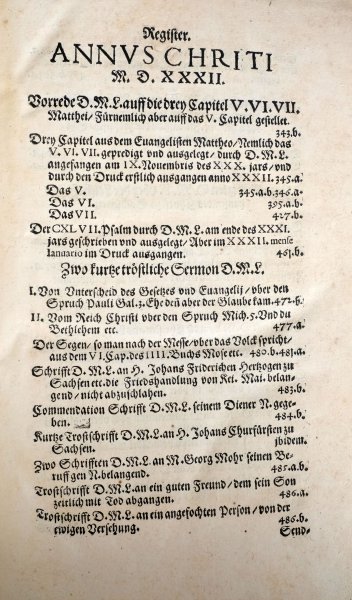 Register.
ANNVS CHRITI
M. D. XXXII.
Vorrede D.M.L. auff die drey Capitel V. VI. VII.
Matthei / Fürnemlich aber auff das V. Capitel gestellet.
343.b.
Drey Capitel aus dem Euangelisten Mattheo / Nemlich das
V. VI. VII. gepredigt vnd ausgelegt / durch D. M. L.
angefangen am IX. Nouembris des XXX. jars / vnd
durch den Druck erstlich ausgangen anno XXXII. 345.a.
Das V. 345.a.b.346.a.
Das VI. 395.a.b.
Das VII. 427.b.
Der CXLVII. Psalm durch D. M. L. am ende des XXXI.
jars geschrieben vnd ausgelegt / Aber im XXXII. mense
Ianuario im Druck ausgangen. 461.b.
Zwo kurtze tröstliche Sermon D.M.L.
I. Von Unterscheid des Gesetzes vnd Euangelij / vber den
Spruch Pauli Gal. 3. Ehe deñ aber der Glaube kam. 472.b.
II. Vom Reich Christi vber den Spruch Mich. 5. Vnd du
Bethlehem etc. 477.a.
Der Segen / so man nach der Messe / vber das Volck spricht /
aus dem VI. Cap. des IIII. Buchs Mose etc. 480.b.481.a.
Schrifft D.M.L. an H. Johans Friderichen Hertzogen zu
Sachsen etc. die Friedshandlung von Kei. Mai. belan-
gend / nicht abzuschlahen. 483.b.
Commendation Schrifft D.M.L. seinem Diener N. gege-
ben. 484.b.
Kurtze Trostschrifft D.M.L. an H. Johans Churfürsten zu
Sachsen. jbidem.
Zwo Schrifften D.M.L. an M. Georg Mohr seinen Be-
ruff gen N. belangend. 485.a.b.
Trostschrifft D.M.L. an ein guten Freund / dem sein Son
zeitlich mit Tod abgangen. 486.a.
Trostschrifft D.M.L. an ein angefochten Person / von der
ewigen Versehung. 486.b.
Send-